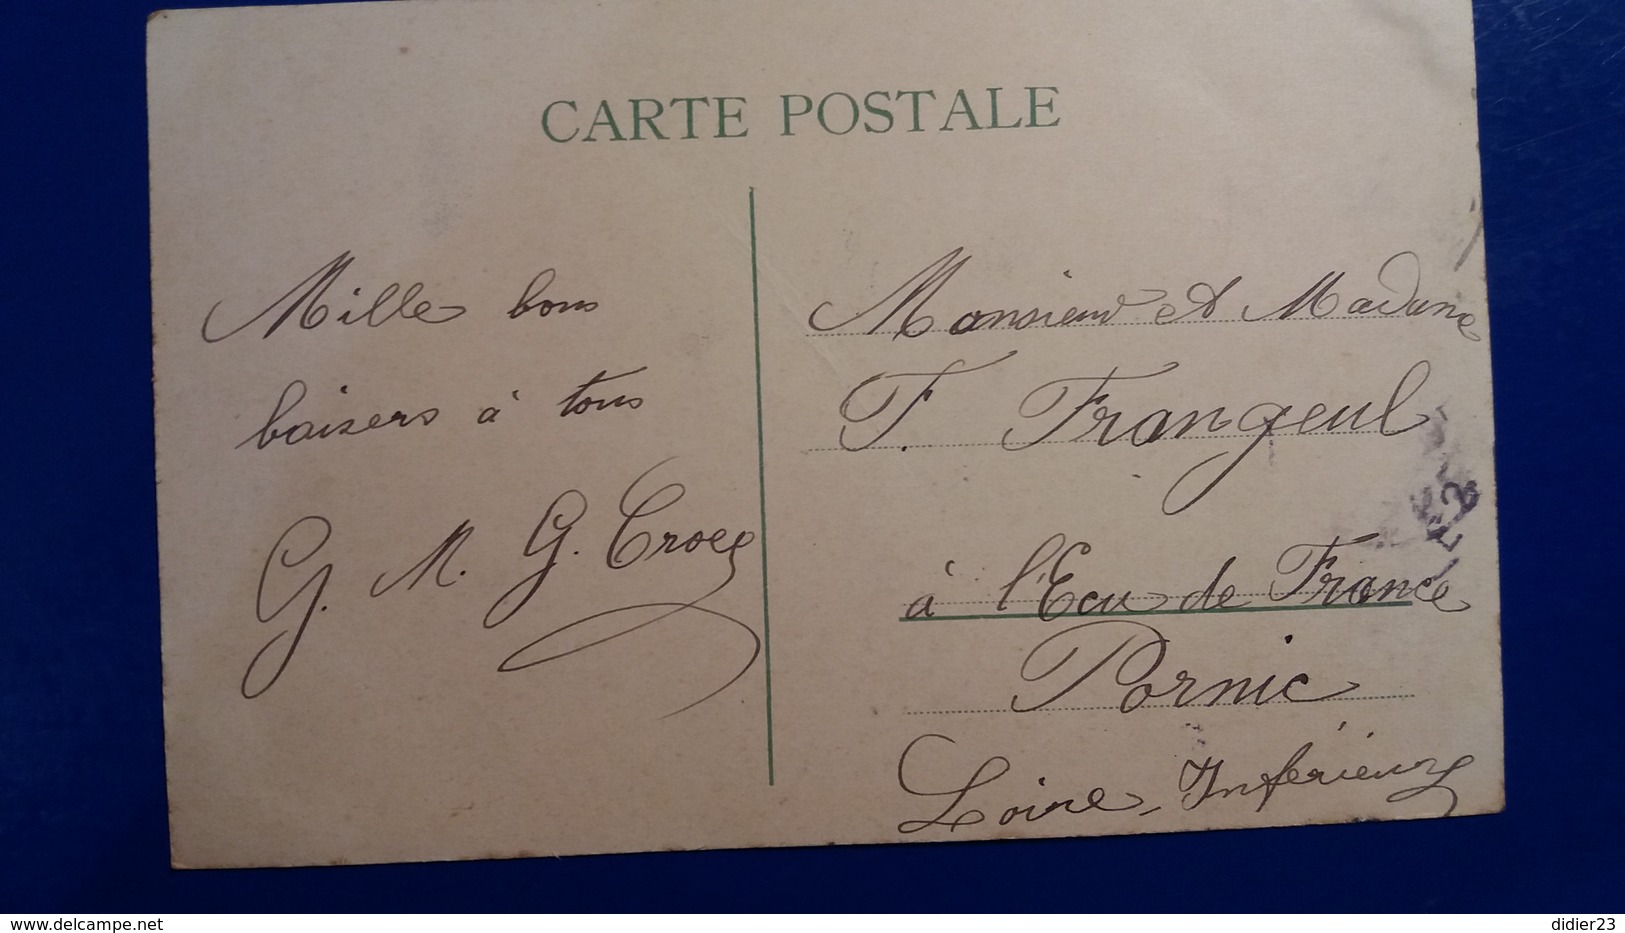 CARTE POSTALE
Mille bons
baisers à tous
G. M. G. Crocq
Monsieur et Madame
F. Frangeul
à l'Ecu de France
Pornic
Loire-Inférieure
www.delcampe.net
didier23